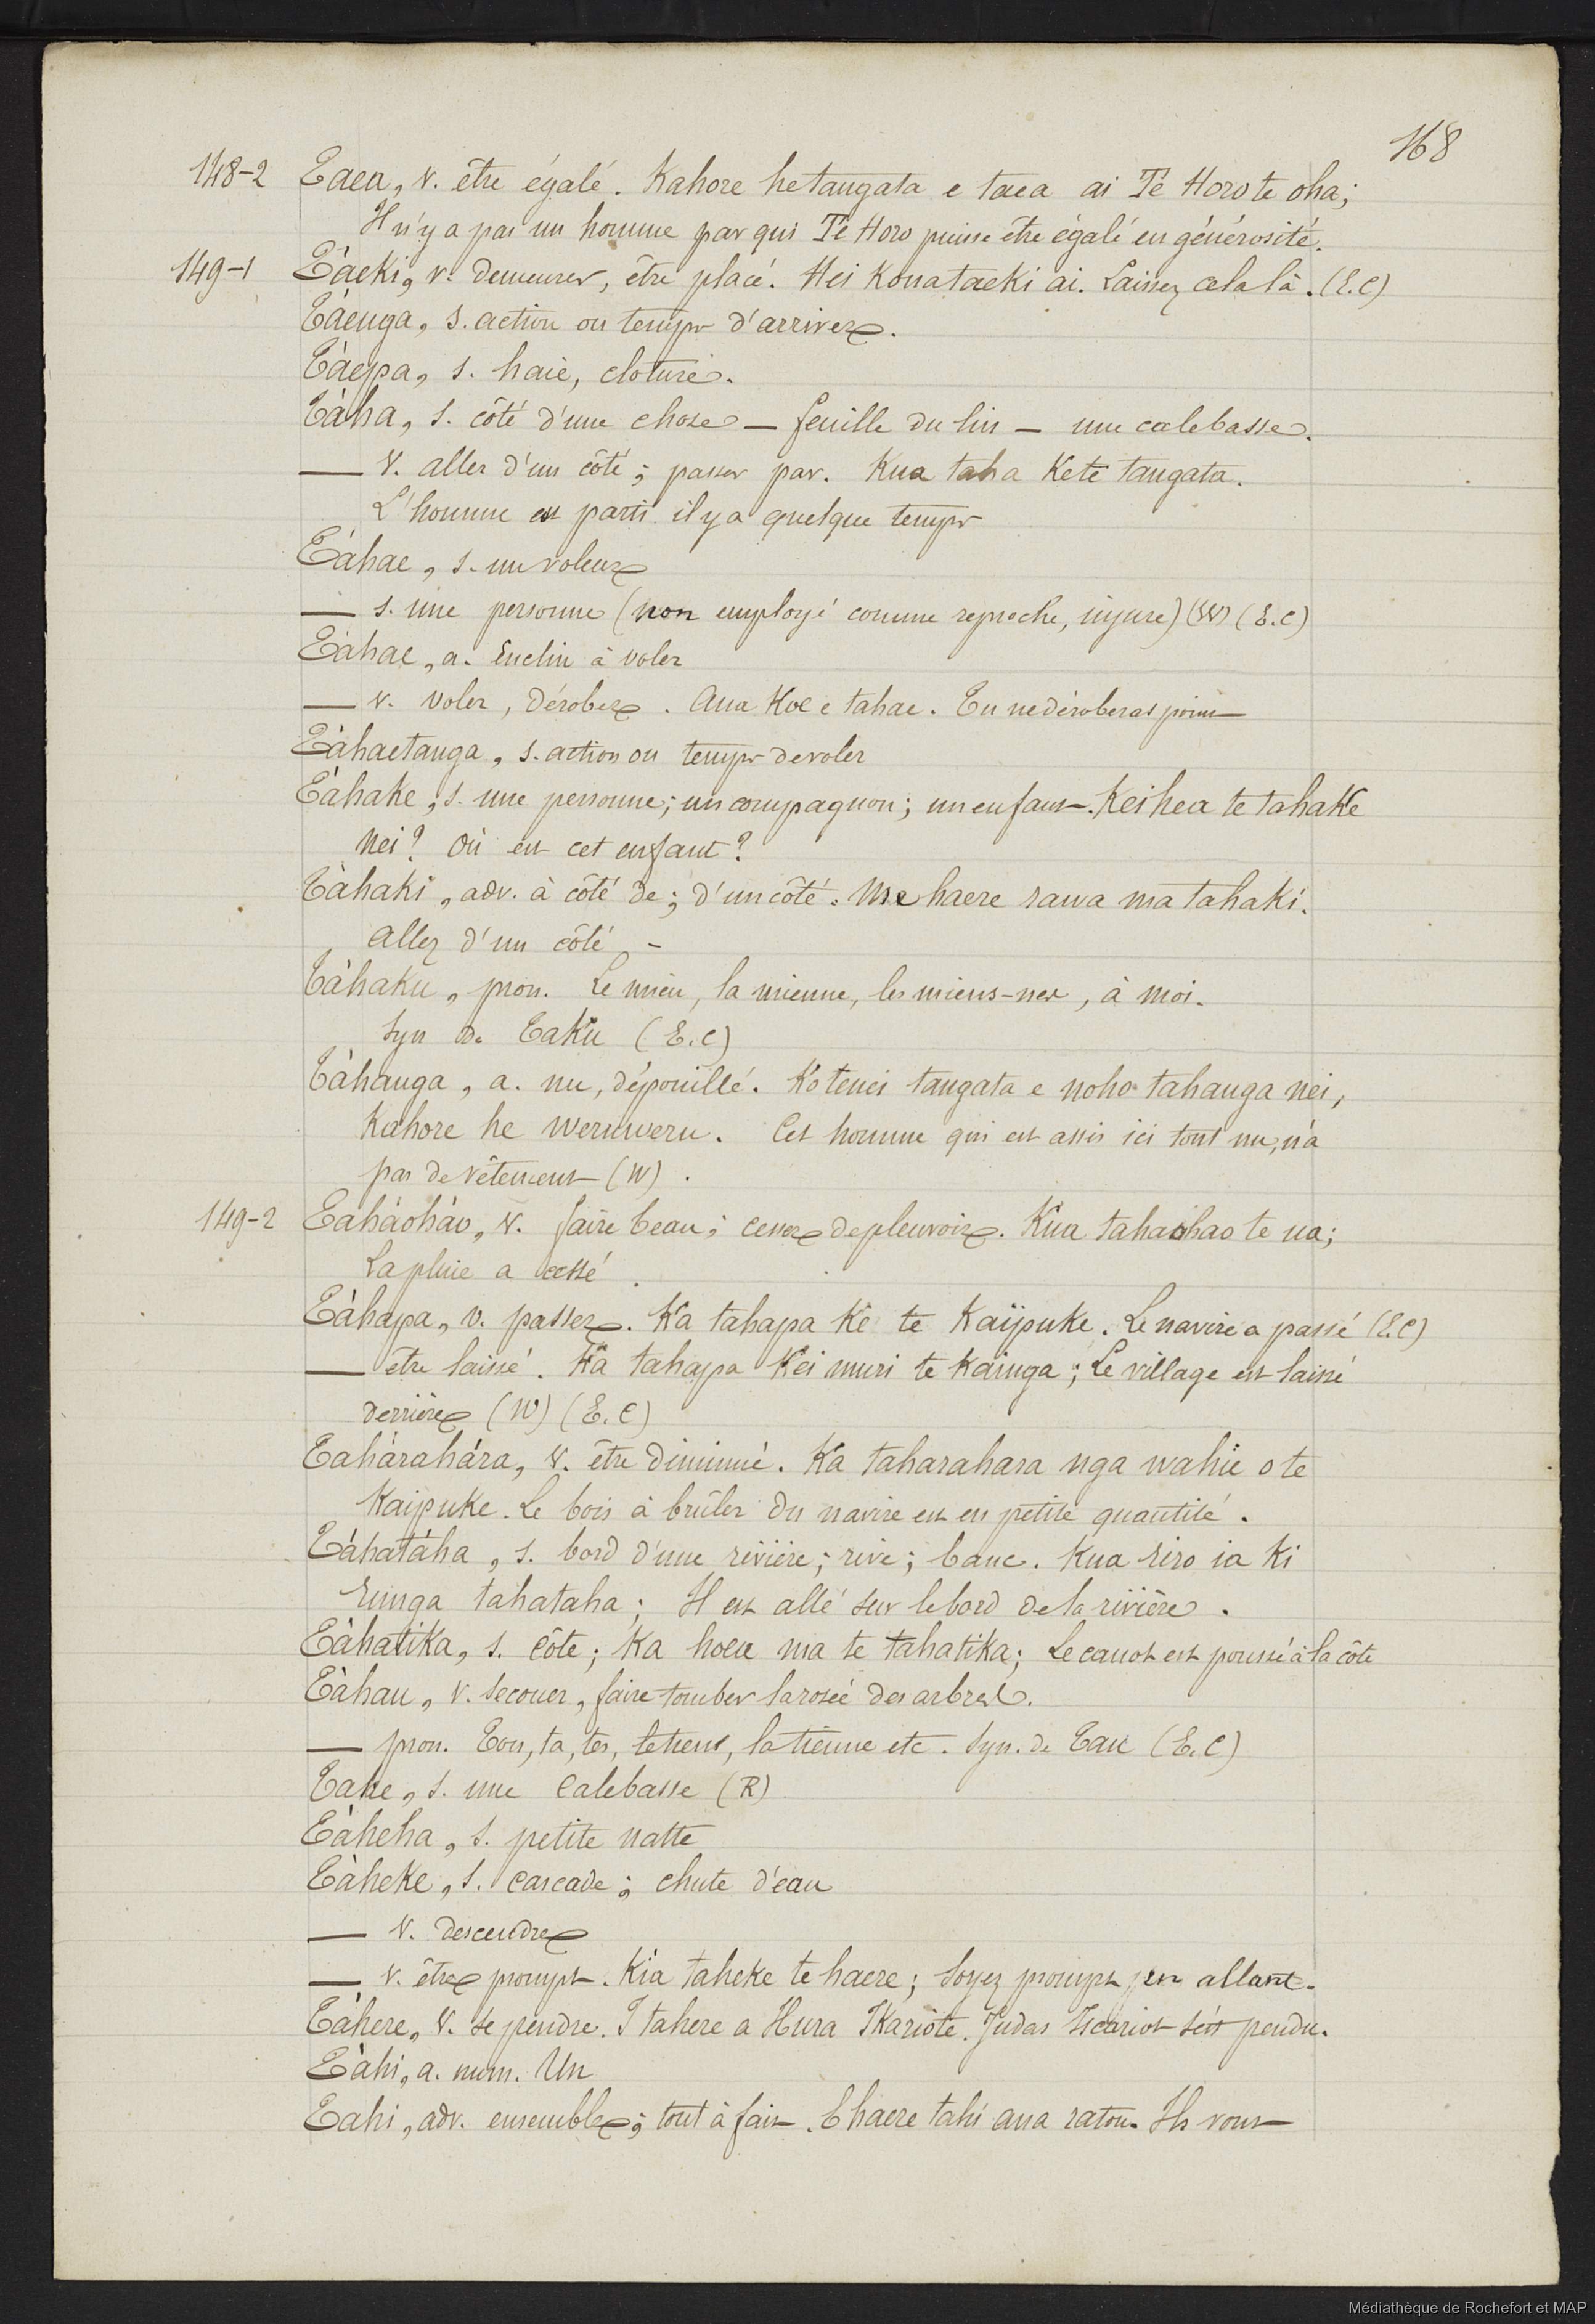 168
148-2 Taea, v. être égalé. Kahore he tangata e taea ai Te Horo te oha;
Il n'y a pas un homme par qui Te Horo puisse être égalé en générosité.
149-1 Tàeki, v. demeurer, être placé. Hei Kona taeki ai. Laissez cela là. (E.C)
Tàenga, s. action ou temps d'arriver.
Tàepa, s. haie, cloture.
Tàha, s. côté d'une chose — feuille du lin — une calebasse.
— v. aller d'un côté; passer par. Kua taha Ke te tangata.
L'homme est parti il y a quelque temps
Tàhae, s. un voleur
— s. une personne (non employé comme reproche, injure) (W) (E.C)
Tàhae, a. Enclin à voler
— v. voler, dérober. Aua Koe e tahae. Tu ne déroberas point
Tàhaetanga, s. action ou temps de voler
Tàhake, s. une personne; un compagnon; un enfant. Kei hea te tahake
nei? Où est cet enfant?
Tàhaki, adv. à côté de; d'un côté. Me haere rawa ma tahaki.
Allez d'un côté -
Tàhaku, pron. Le mien, la mienne, les miens-nes, à moi.
Syn de Taku (E.C)
Tàhanga, a. nu, dépouillé. Ko tenei tangata e noho tahanga nei,
Kahore he weruweru. Cet homme qui est assis ici tout nu, n'a
pas de vêtement (W).
149-2 Tahàohào, v. faire beau; cesser de pleuvoir. Kua tahaohao te ua;
La pluie a cessé.
Tàhapa, v. passer. Ka tahapa Kè te Kaïpuke. Le navire a passé (E.C)
— être laissé. Ka tahapa Kei muri te Kainga; Le village est laissé
derrière (W) (E.C)
Tahàrahàra, v. être diminué. Ka taharahara nga wahie o te
Kaipuke. Le bois à brûler du navire est en petite quantité.
Tàhatàha, s. bord d'une rivière; rive; banc. Kua riro ia Ki
runga tahataha; Il est allé sur le bord de la rivière.
Tàhatika, s. côte; Ka hoea ma te tahatika; Le canot est poussé à la côte
Tàhau, v. secouer, faire tomber la rosée des arbres.
— pron. Ton, ta, tes, le tiens, la tienne etc. Syn. de Tau (E.C)
Tahe, s. une Calebasse (R)
Tàheha, s. petite natte
Tàheke, s. cascade; chute d'eau
— v. descendre
— v. être prompt. Kia taheke te haere; Soyez prompt en allant.
Tàhere, v. se pendre. I tahere a Hura Ikariote. Judas Iscariot s'est pendu.
Tàhi, a. num. Un
Tahi, adv. ensemble; tout à fait. E haere tahi ana ratou. Ils vont
Médiathèque de Rochefort et MAP